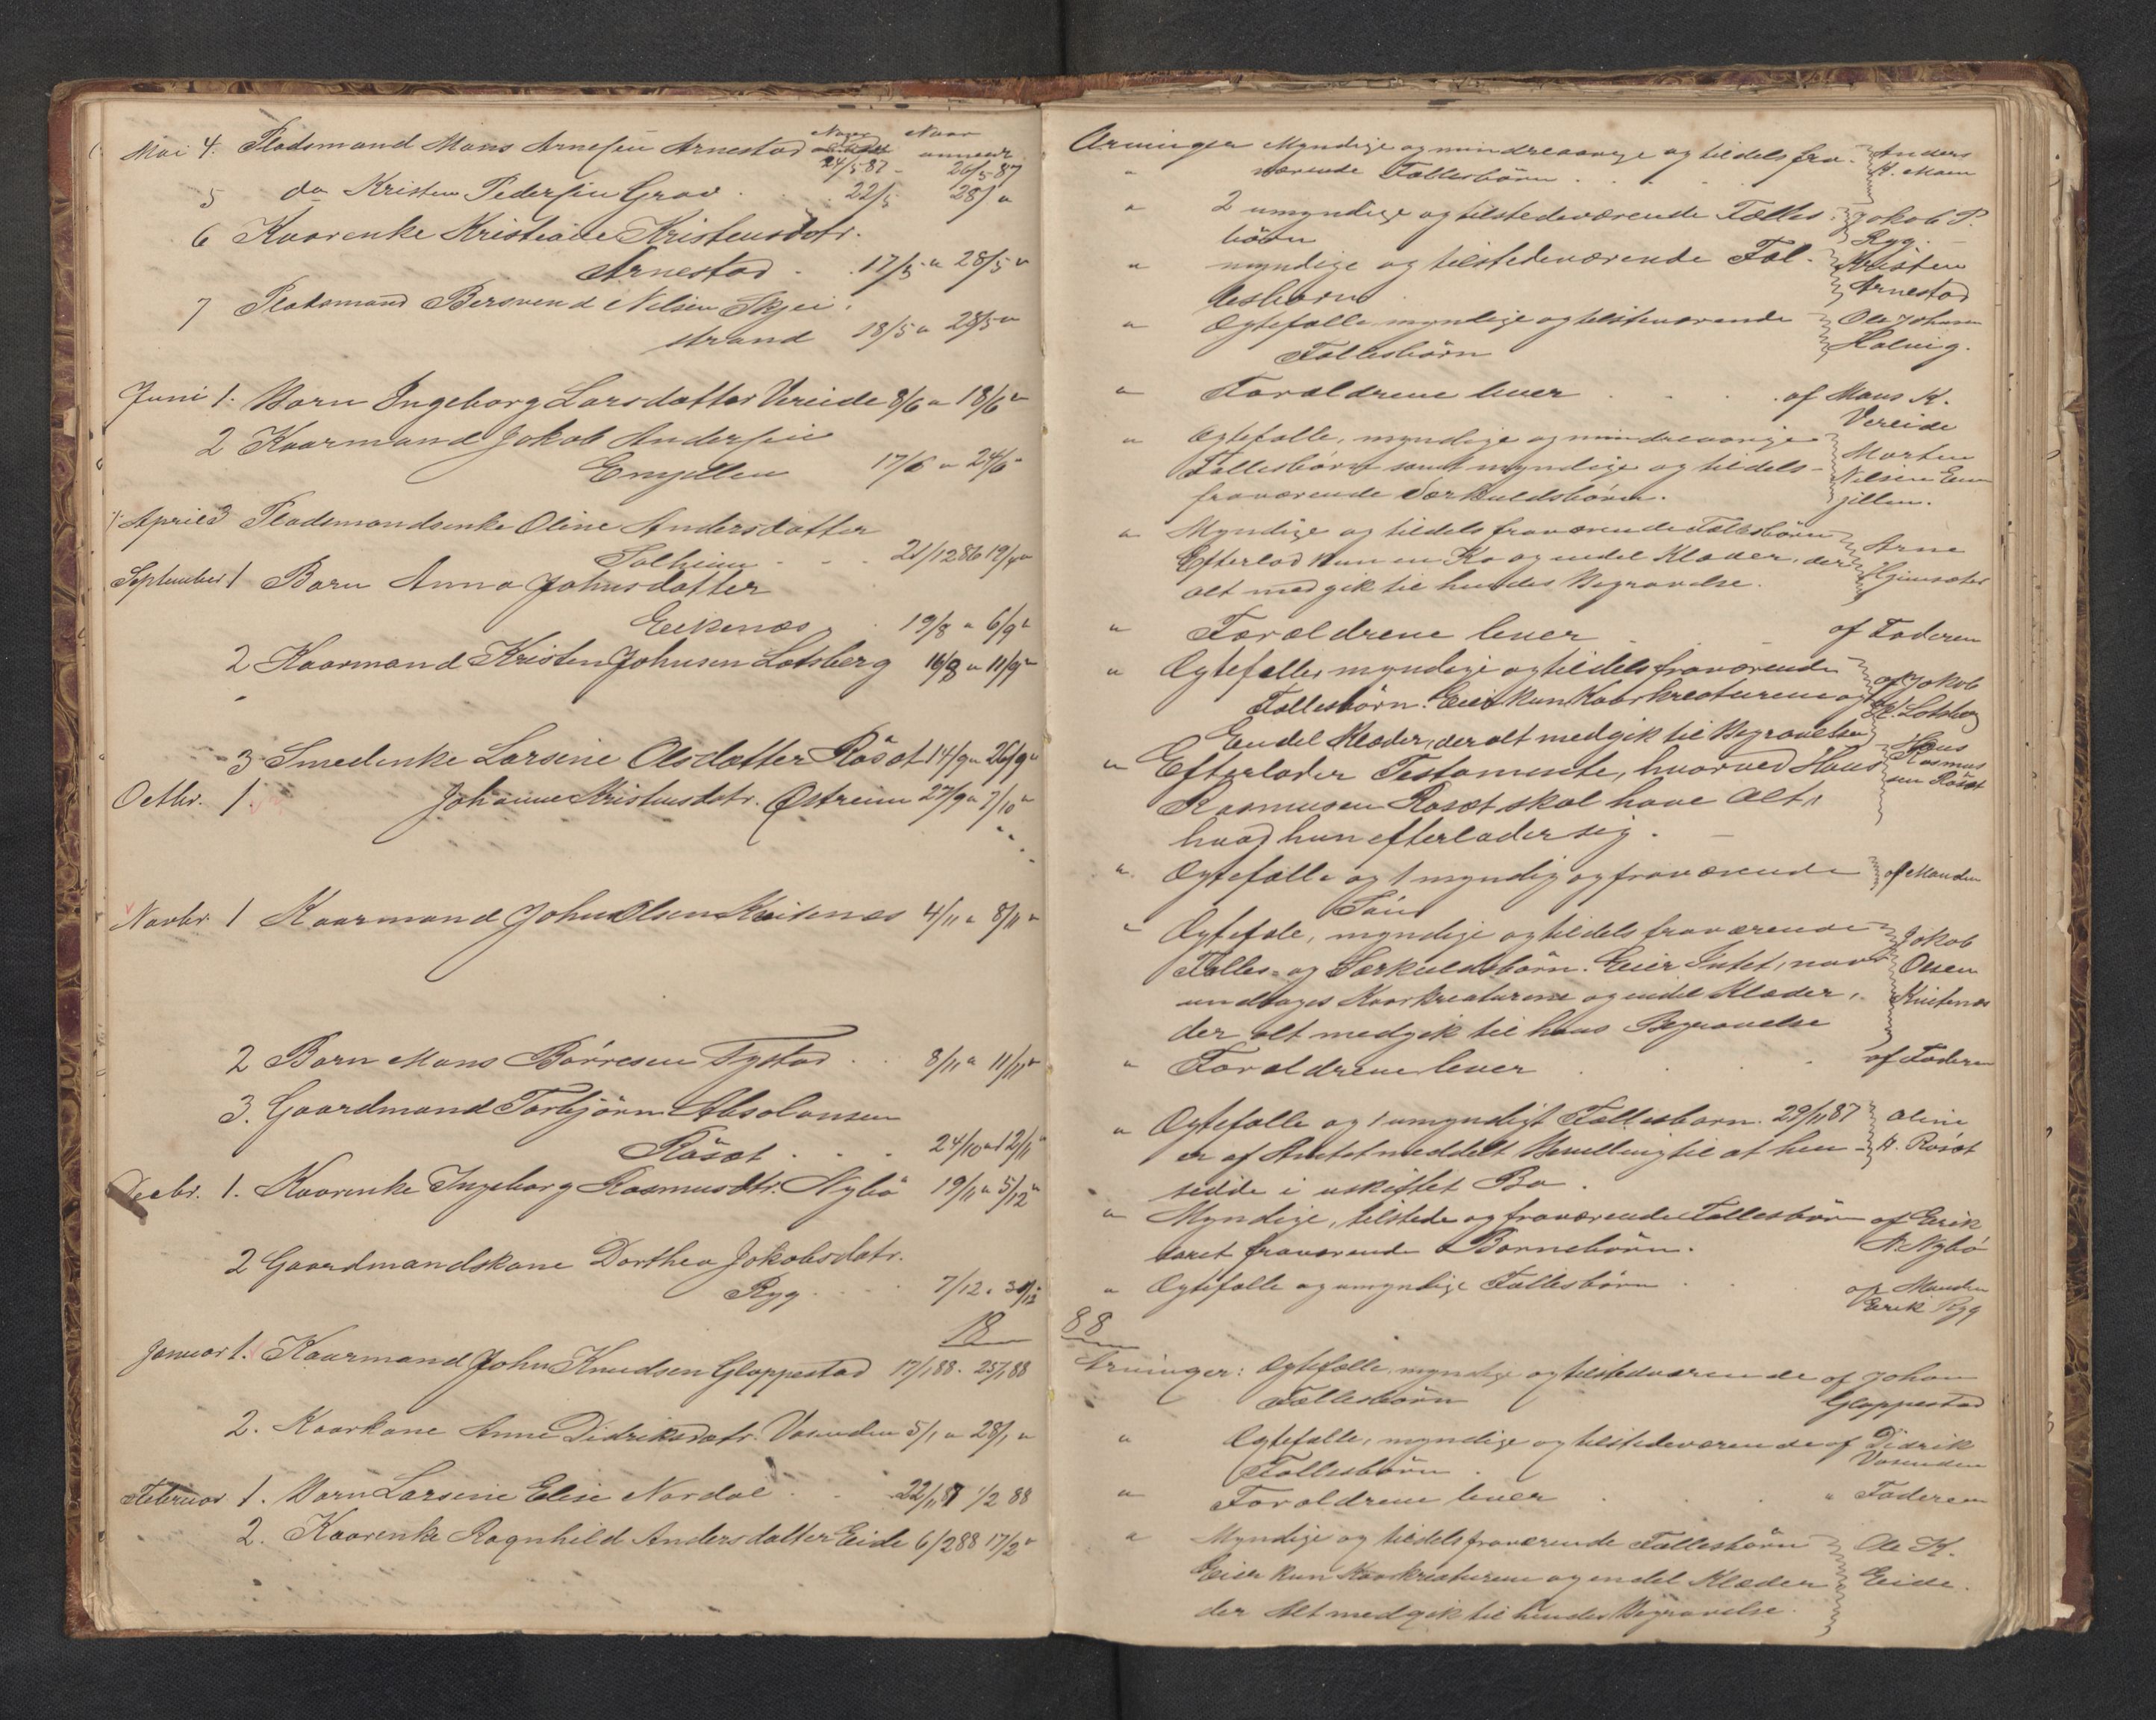 Naar Naar
Mai 4. Pladsmand Mons Arnesen Arnestad anmeldt
24/5 87 - 26/5 87
5 do Kristen Pedersen Grov . . 22/5 28/5 "
6 Kaarenke Kristiane Kristensdotr.
Arnestad . . 17/5 " 28/5 "
7 Pladsmand Bersvend Nilsen Skjei-
strand 18/5 " 28/5 "
Juni 1. Barn Ingeborg Larsdatter Vereide 8/6 " 18/6 "
2 Kaarmand Jakob Andersen
17/6 " 24/6 "
April 3 Pladsmandsenke Oline Andersdatter
Solheim . . . 21/12 86 19/4 "
September 1 Barn Anna Johnsdatter
Eikenæs . . 19/8 " 6/9 "
2 Kaarmand Kristen Johnsen Lotsberg 16/8 " 11/9 "
3 Smedenke Larsine Olsdatter Rösæt 14/9 " 26/9 "
Octbr. 1. Johanne Kristensdotr. Østreim 27/9 " 7/10 "
Novbr. 1 Kaarmand John Olsen 4/11 " 8/11 "
2 Barn Mons Börresen Tystad . . 8/11 " 11/11 "
3. Gaardmand Torbjörn Absolonsen
Rösæt . . . 24/10 " 12/11 "
Decbr. 1. Kaarenke Ingeborg Rasmusdtr. Nybö 19/11 " 5/12 "
2 Gaardmandskone Dorthea Jakobsdatr.
Ryg . . . 7/12 " 31/12
18
Januar 1. Kaarmand John Knudsen Gloppestad 17/1 88. 25/1 88
2. Kaarkone Anne Didriksdatr. Vasenden 5/1 " 28/1 "
Februar 1. Barn Larsine Elise Nordal . . . 22/11 87 1/2 88
2. Kaarenke Ragnhild Andersdatter Eide 6/2 88 17/2 "
Arvinger Myndige og mindreaarige og tildels fra- Anders
værende Fællesbörn . . . . K. Moen
" 2 umyndige og tilstedeværende Fælles- Jakob P.
börn Ryg.
" myndige og tilstedeværende Fæl- Kristen
lesbörn Arnestad
" Ægtefælle, myndige og tilstværende Ole Johnsen
Fællesbörn
" Forældrene lever . . . af Mons K.
Vereide
" Ægtefælle, myndige og mindreaarige Morten
Fællesbörn samt myndige og tildels Nilsen Em-
fraværende Særkuldsbörn. jellen.
" Myndige og tildels fraværende Fællesbörn Arne
Efterlod kun en Ko og endel Klæder, der
alt medgik til hendes Begravelse.
" Forældrene lever . . af Faderen
" Ægtefælle, myndige og tildels fraværende af Jakob
Fællesbörn. Eier kun Kaarkreaturene og K. Lotsberg
Endel Klæder, der alt medgik til Begravelsen
" Efterlader Testamente, hvorved Hans Hans Rasmus-
Rasmusen Rösæt skal have Alt, sen Rösæt
hvad hun efterlader sig.
" Ægtefælle og 1 myndig og fraværende af Manden
Sön
" Ægtefæle, myndige og tildels fraværende Jakob
Fælles- og Særkuldsbörn. Eier Intet, naar Olsen
undtages Kaarkreaturene og endel Klæder,
der alt medgik til hans Begravelse
" Forældrene lever . . . af Faderen
" Ægtefælle og 1 umyndigt Fællesbarn. 29/11 87 Oline
er af Amtet meddelt Bevilling til at hen- A. Rösæt
sidde i uskiftet Bo.
" Myndige, tilstede og fraværende Fællesbörn af Erik
samt fraværende Barnebörn. A. Nybö
" Ægtefælle og umyndige Fællesbörn . . af Manden
Erik Ryg
88
Arvinger: Ægtefælle, myndige og tilstedværende af Johan
Fællesbörn Gloppestad
" Ægtefælle, myndige og tilstedeværende af Didrik
Fællesbörn . Vasenden
" Forældrene lever . . . " Faderen
" Myndige og tildels fraværende Fællesbörn Ole K.
Eier kun Kaarkreaturene og endel Klæder Eide.
der Alt medgik til hendes Begravelse.